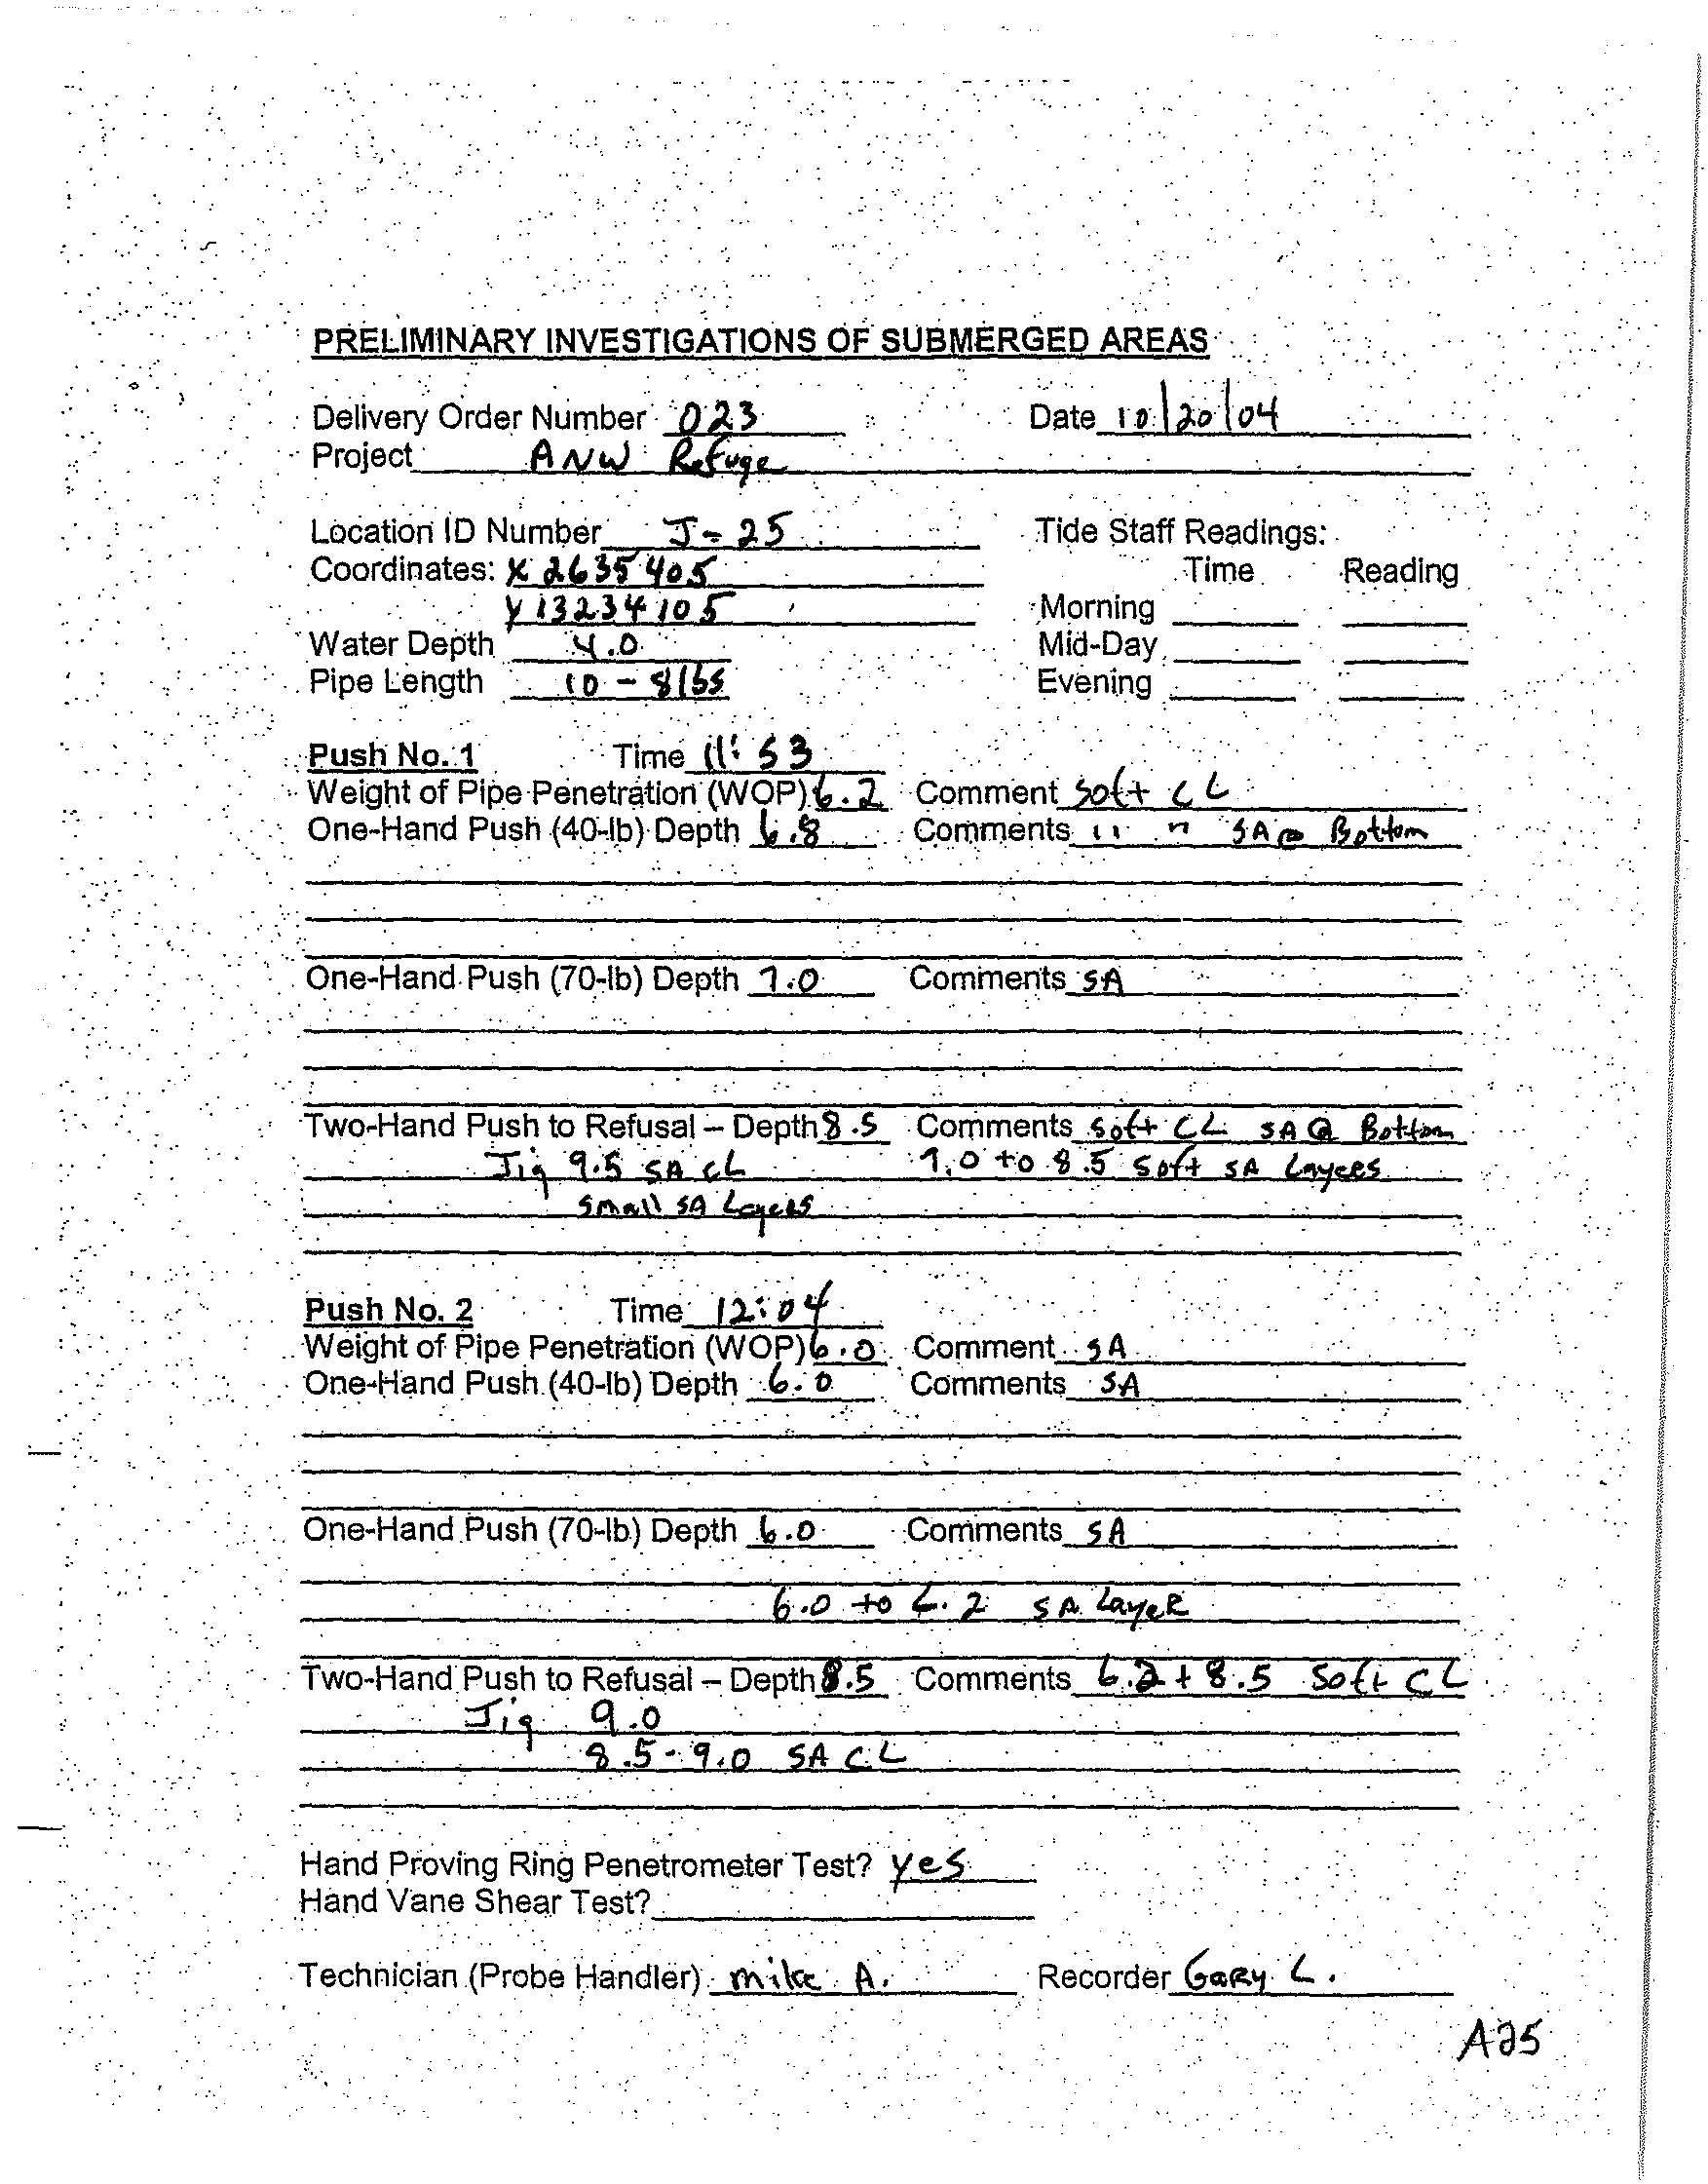 PRELIMINARY INVESTIGATIONS OF SUBMERGED AREAS
Delivery Order Number 023 Date 10/20/04
Project ANW Refuge
Location ID Number J-25 Tide Staff Readings:
Coordinates: X 2635405 Time Reading
Y 13234105 Morning
Water Depth 4.0 Mid-Day
Pipe Length 10 - 8lbs Evening
Push No. 1 Time 11:53
Weight of Pipe Penetration (WOP) 6.2 Comment Soft CL
One-Hand Push (40-lb) Depth 6.8 Comments " " SA @ Bottom
One-Hand Push (70-lb) Depth 7.0 Comments SA
Two-Hand Push to Refusal – Depth 8.5 Comments Soft CL SA @ Bottom
Jig 9.5 SA CL 7.0 to 8.5 Soft SA Layers
Small SA Layers
Push No. 2 Time 12:04
Weight of Pipe Penetration (WOP) 6.0 Comment SA
One-Hand Push (40-lb) Depth 6.0 Comments SA
One-Hand Push (70-lb) Depth 6.0 Comments SA
6.0 to 6.2 SA Layer
Two-Hand Push to Refusal – Depth 8.5 Comments 6.2 + 8.5 Soft CL
Jig 9.0
8.5 - 9.0 SA CL
Hand Proving Ring Penetrometer Test? yes
Hand Vane Shear Test?
Technician (Probe Handler) Mike A. Recorder Gary L.
A25